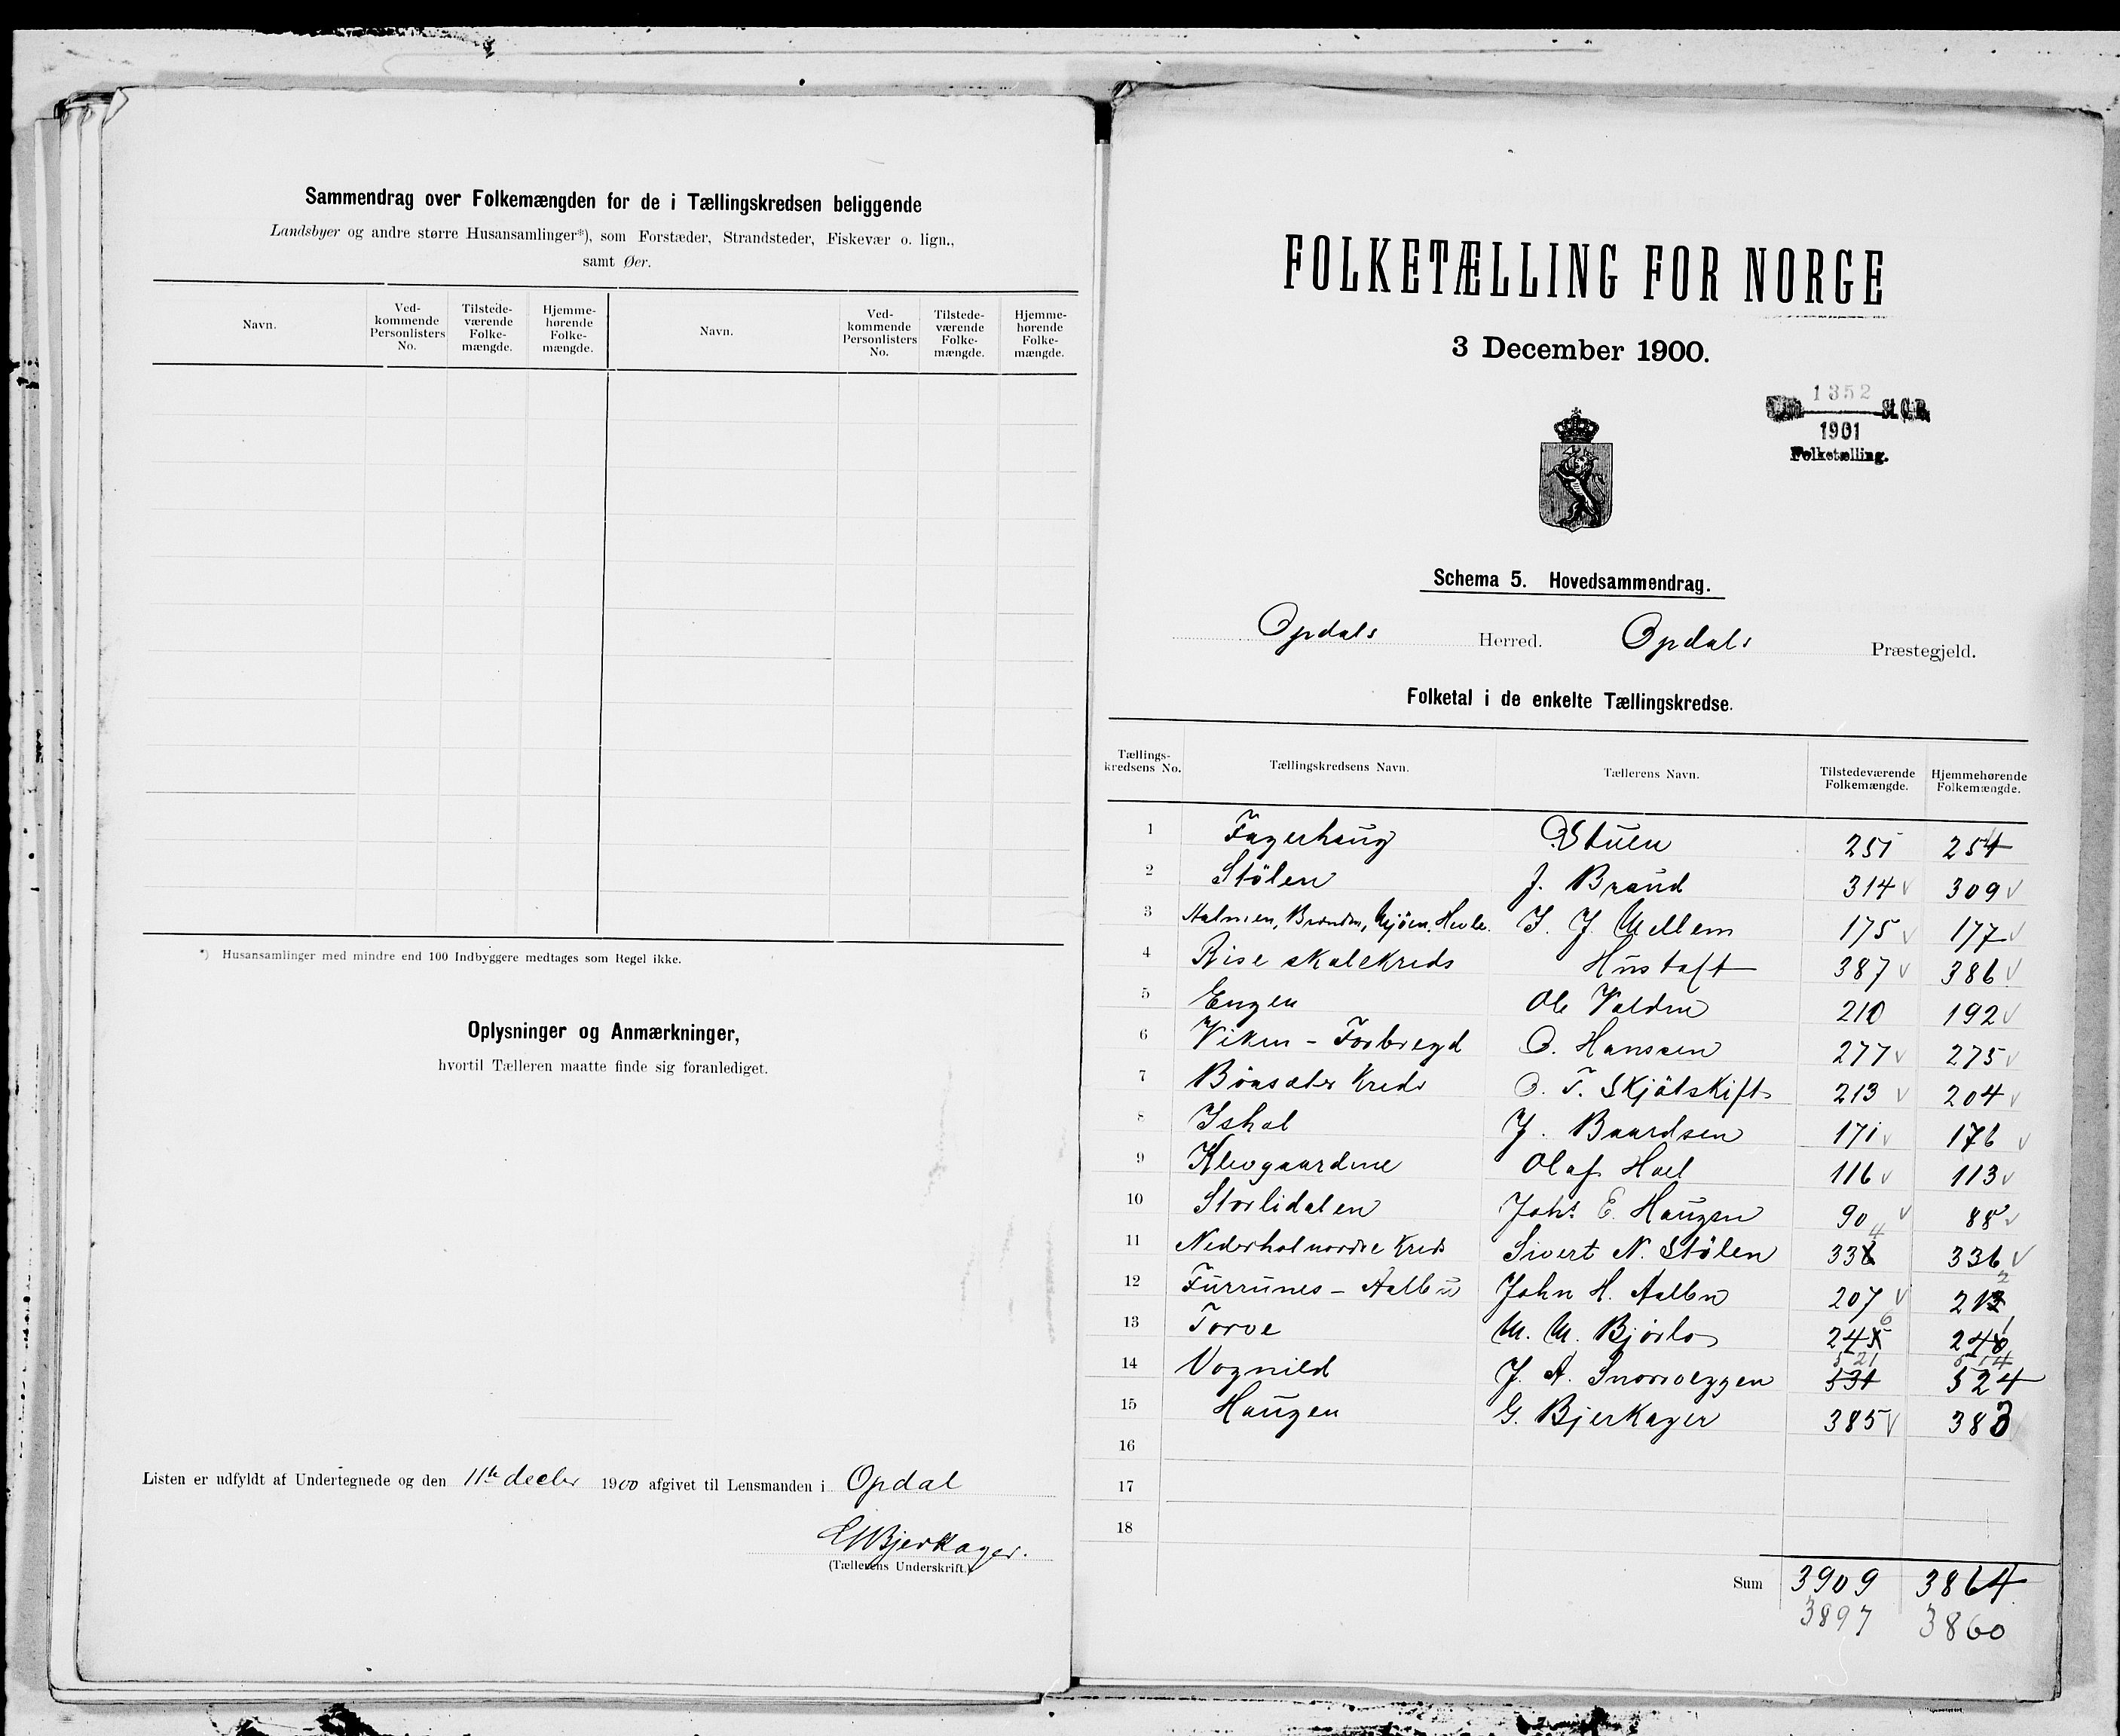 Sammendrag over Folkemængden for de i Tællingskredsen beliggende
Landsbyer og andre større Husansamlinger*), som Forstæder, Strandsteder, Fiskevær o. lign.,
samt Øer.
Navn.
Ved-
kommende
Personlisters
No.
Tilstede-
værende
Folke-
mængde.
Hjemme-
hørende
Folke-
mængde.
Navn.
Ved-
kommende
Personlisters
No.
Tilstede-
værende
Folke-
mængde.
Hjemme-
hørende
Folke-
mængde.
*) Husansamlinger med mindre end 100 Indbyggere medtages som Regel ikke.
Oplysninger og Anmærkninger,
hvortil Tælleren maatte finde sig foranlediget.
Listen er udfyldt af Undertegnede og den 11te decbr 1900 afgivet til Lensmanden i Opdal
Bjerkager.
(Tællerens Underskrift.)
FOLKETÆLLING FOR NORGE
3 December 1900.
1352
St. C. B.
1901
Folketælling.
Schema 5. Hovedsammendrag.
Opdals Herred. Opdals Præstegjeld.
Folketal i de enkelte Tællingskredse.
Tællings-
kredsens No.
Tællingskredsens Navn.
Tællerens Navn.
Tilstedeværende
Folkemængde.
Hjemmehørende
Folkemængde.
1 Fagerhaug O Stuen 251 254
2 Stölen J. Braud 314 309
3 Aalmen, Mjöen, J. J. Mellem 175 177
4 Rise skolekreds Hustoft 387 386
5 Engen Ole 210 192
6 Viken - Forbregd O. Hanssen 277 275
7 Kreds O. T. Skjötskift 213 204
8 Ishol J. Baardsen 171 176
9 Klevgaardene Olaf Hoel 116 113
10 Storlidalen Johs E. Haugen 90 88
4
11 Nederhol nordre Kreds Sivert N. Stölen 338 336
2
12 Furrunes - Aalbu John H. Aalbu 207 213
6 1
13 Torve M. M. Bjørlo 245 240
521 514
14 Vognild J. A. Snoroeggen 531 524
15 Haugen G. Bjerkager 385 383
16
17
18
Sum 3909 3864
3897 3860